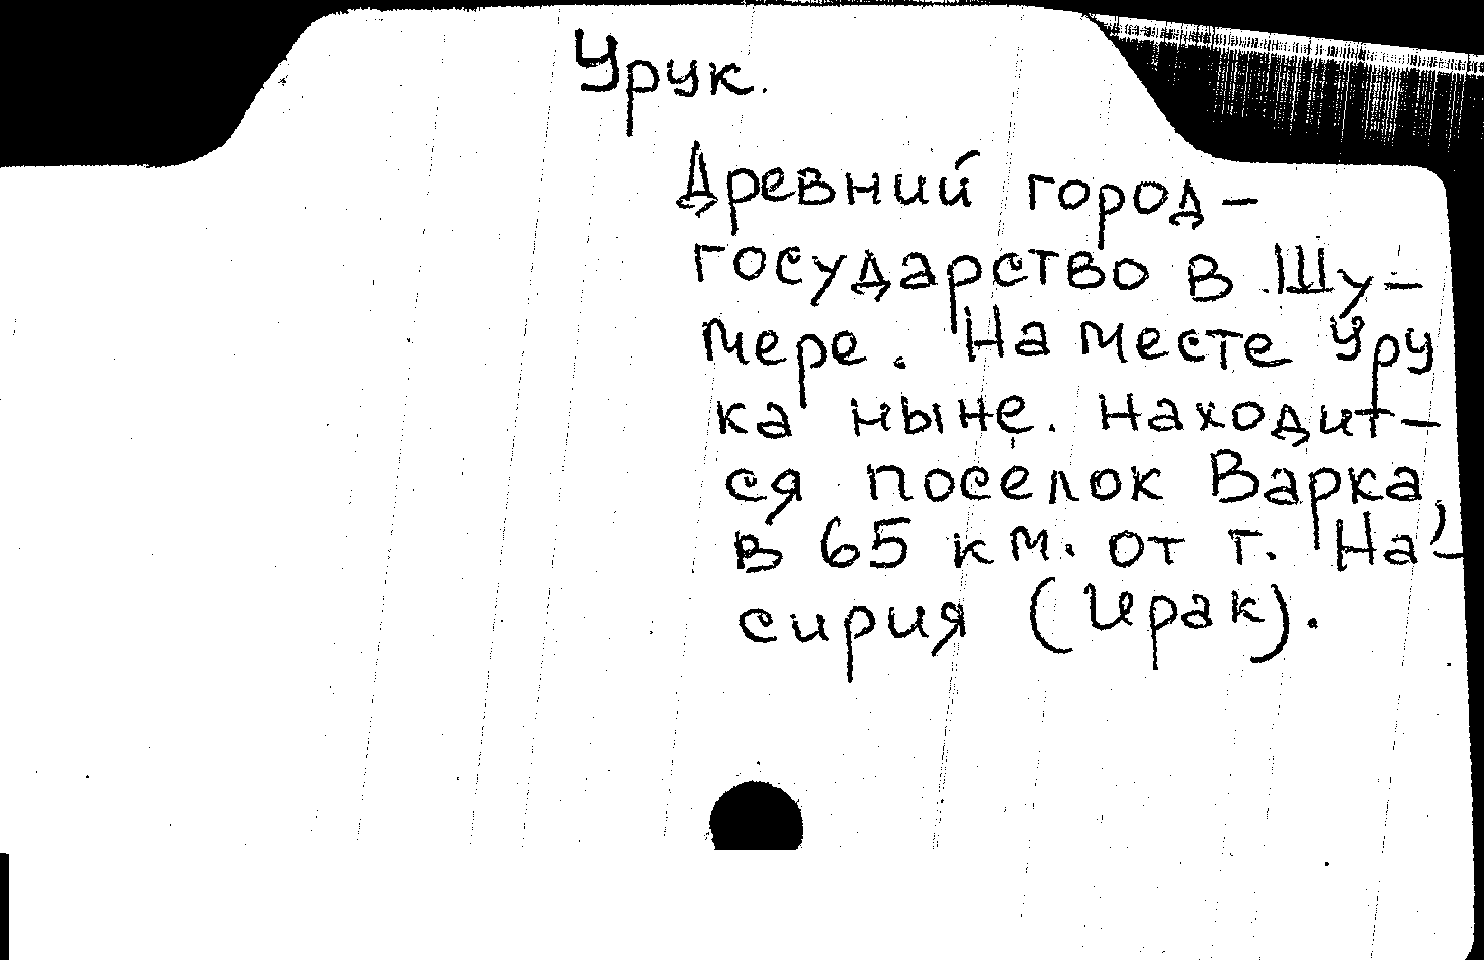 Урук.
Древний город-
государство в Шу-
мере. На месте Уру
ка ныне. находит-
ся посёлок Варка,
в 65 км. от г. На-
сирия (Ирак).